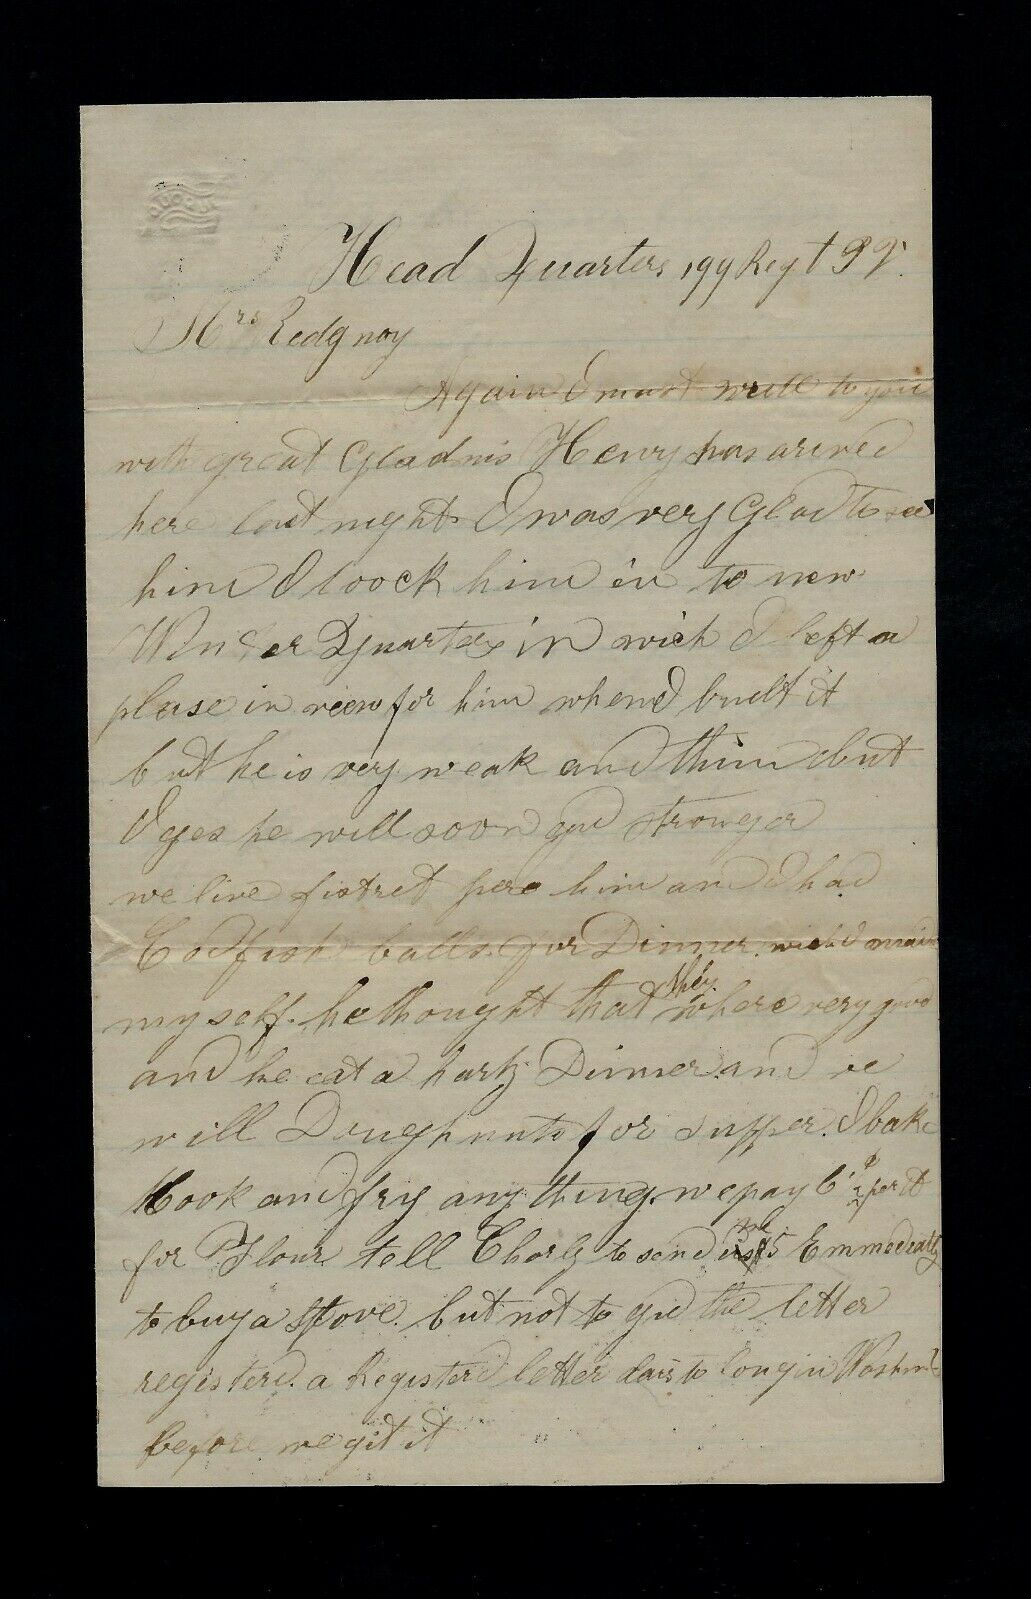 Head Quarters 199 Regt P V.
Mrs Redgnoy
Again I must write to you
with great Gladnis Henry has arived
here last night I was very Glad to see
him I toock him in to new
Winter Quarters in wich I left a
plase in view for him when I built it
but he is very weak and thin but
I ges he will soon git stronger
we live fistret here him and I had
Codfish balls for Dinner wich I maid
myself. he thought that they where very good
and he eat a harty Dinner and we
will Doughnuts for supper. I bake
Cook and fry any thing. we pay 6 per lb
for Flour tell Charly to send me $5 Emmediatly
to buy a Stove. but not to git the letter
registerd. a Registerd letter lais to long in Washint
before we git it